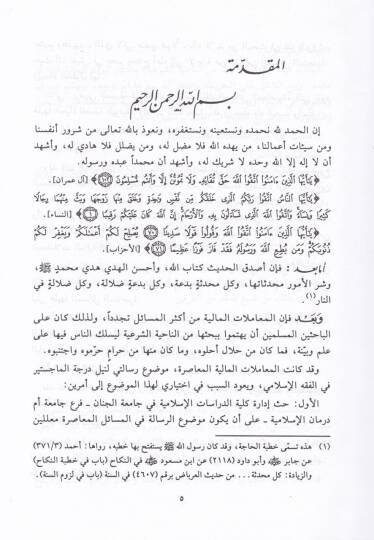 المقدّمة
بسم الله الرحمن الرحيم
إن الحمد لله نحمده ونستعينه ونستغفره، ونعوذ بالله تعالى من شرور أنفسنا
ومن سيئات أعمالنا، من يهده الله فلا مضل له، ومن يضلل فلا هادي له، وأشهد
أن لا إله إلا الله وحده لا شريك له، وأشهد أن محمداً عبده ورسوله.
﴿يَٰٓأَيُّهَا ٱلَّذِينَ ءَامَنُوا۟ ٱتَّقُوا۟ ٱللَّهَ حَقَّ تُقَاتِهِۦ وَلَا تَمُوتُنَّ إِلَّا وَأَنتُم مُّسْلِمُونَ ﴿١٠٢﴾﴾ [آل عمران].
﴿يَٰٓأَيُّهَا ٱلنَّاسُ ٱتَّقُوا۟ رَبَّكُمُ ٱلَّذِى خَلَقَكُم مِّن نَّفْسٍ وَٰحِدَةٍ وَخَلَقَ مِنْهَا زَوْجَهَا وَبَثَّ مِنْهُمَا رِجَالًا
كَثِيرًا وَنِسَآءً وَٱتَّقُوا۟ ٱللَّهَ ٱلَّذِى تَسَآءَلُونَ بِهِۦ وَٱلْأَرْحَامَ إِنَّ ٱللَّهَ كَانَ عَلَيْكُمْ رَقِيبًا ﴿١﴾﴾ [النساء].
﴿يَٰٓأَيُّهَا ٱلَّذِينَ ءَامَنُوا۟ ٱتَّقُوا۟ ٱللَّهَ وَقُولُوا۟ قَوْلًا سَدِيدًا ﴿٧٠﴾ يُصْلِحْ لَكُمْ أَعْمَٰلَكُمْ وَيَغْفِرْ لَكُمْ
ذُنُوبَكُمْ وَمَن يُطِعِ ٱللَّهَ وَرَسُولَهُۥ فَقَدْ فَازَ فَوْزًا عَظِيمًا ﴿٧١﴾﴾ [الأحزاب].
أما بعد: فإن أصدق الحديث كتاب الله، وأحسن الهدي هدي محمدٍ ﷺ،
وشر الأمور محدثاتها، وكل محدثةٍ بدعة، وكل بدعةٍ ضلالة، وكل ضلالةٍ في
النار(١).
وبعد فإن المعاملات المالية من أكثر المسائل تجدداً، ولذلك كان على
الباحثين المسلمين أن يهتموا ببحثها من الناحية الشرعية ليسلك الناس فيها على
علم وبيّنة، فما كان من حلال أحلوه، وما كان منها من حرام حرّموه واجتنبوه.
وقد كانت المعاملات المالية المعاصرة، موضوع رسالتي لنيل درجة الماجستير
في الفقه الإسلامي، ويعود السبب في اختياري لهذا الموضوع إلى أمرين:
الأول: حث إدارة كلية الدراسات الإسلامية في جامعة الجنان ـ فرع جامعة أم
درمان الإسلامية ـ على أن يكون موضوع الرسالة في المسائل المعاصرة معللين
(١) هذه تسمّى خطبة الحاجة، وقد كان رسول الله ﷺ يستفتح بها خطبه، رواها: أحمد (٣٧١/٣)
عن جابر ﷺ وأبو داود (٢١١٨) عن ابن مسعود ﷺ في النكاح (باب في خطبة النكاح)
والزيادة: كل محدثة... من حديث العرباض برقم (٤٦٠٧) في السنة (باب في لزوم السنة).
٥